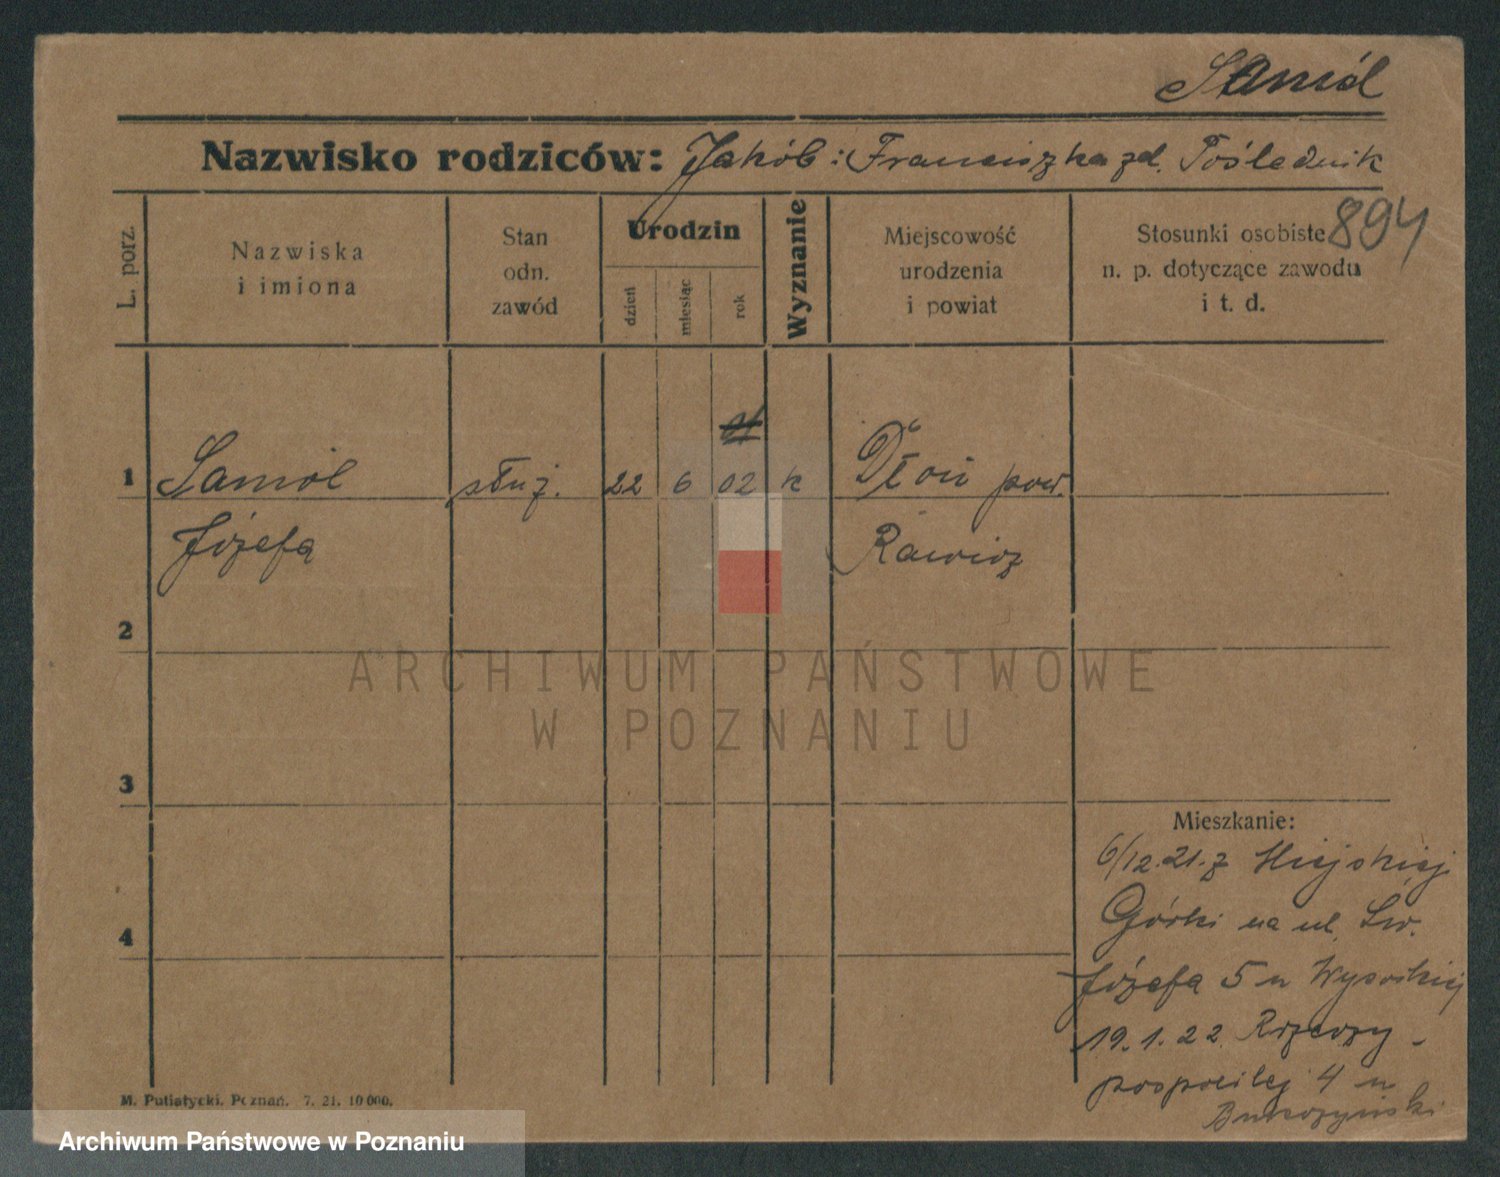 Samól
Nazwisko rodziców: Jakób i Franciszka zd. Poślednik
894
L. porz.
Nazwiska
i imiona
Stan
odn.
zawód
Urodzin
dzień
miesiąc
rok
Wyznanie
Miejscowość
urodzenia
i powiat
Stosunki osobiste
n. p. dotyczące zawodu
i t. d.
1 Samól służ. 22 6 02 k Dłoń pow.
Józefa Rawicz
2
ARCHIWUM PAŃSTWOWE
W POZNANIU
3
Mieszkanie:
6/12.21. z Miejskiej
Górki na ul. Św.
4
Józefa 5 u Wysockiej
19.1.22 Rzeczy-
pospolitej 4 u
M. Putiatycki, Poznań. 7. 21. 10 000.
Archiwum Państwowe w Poznaniu